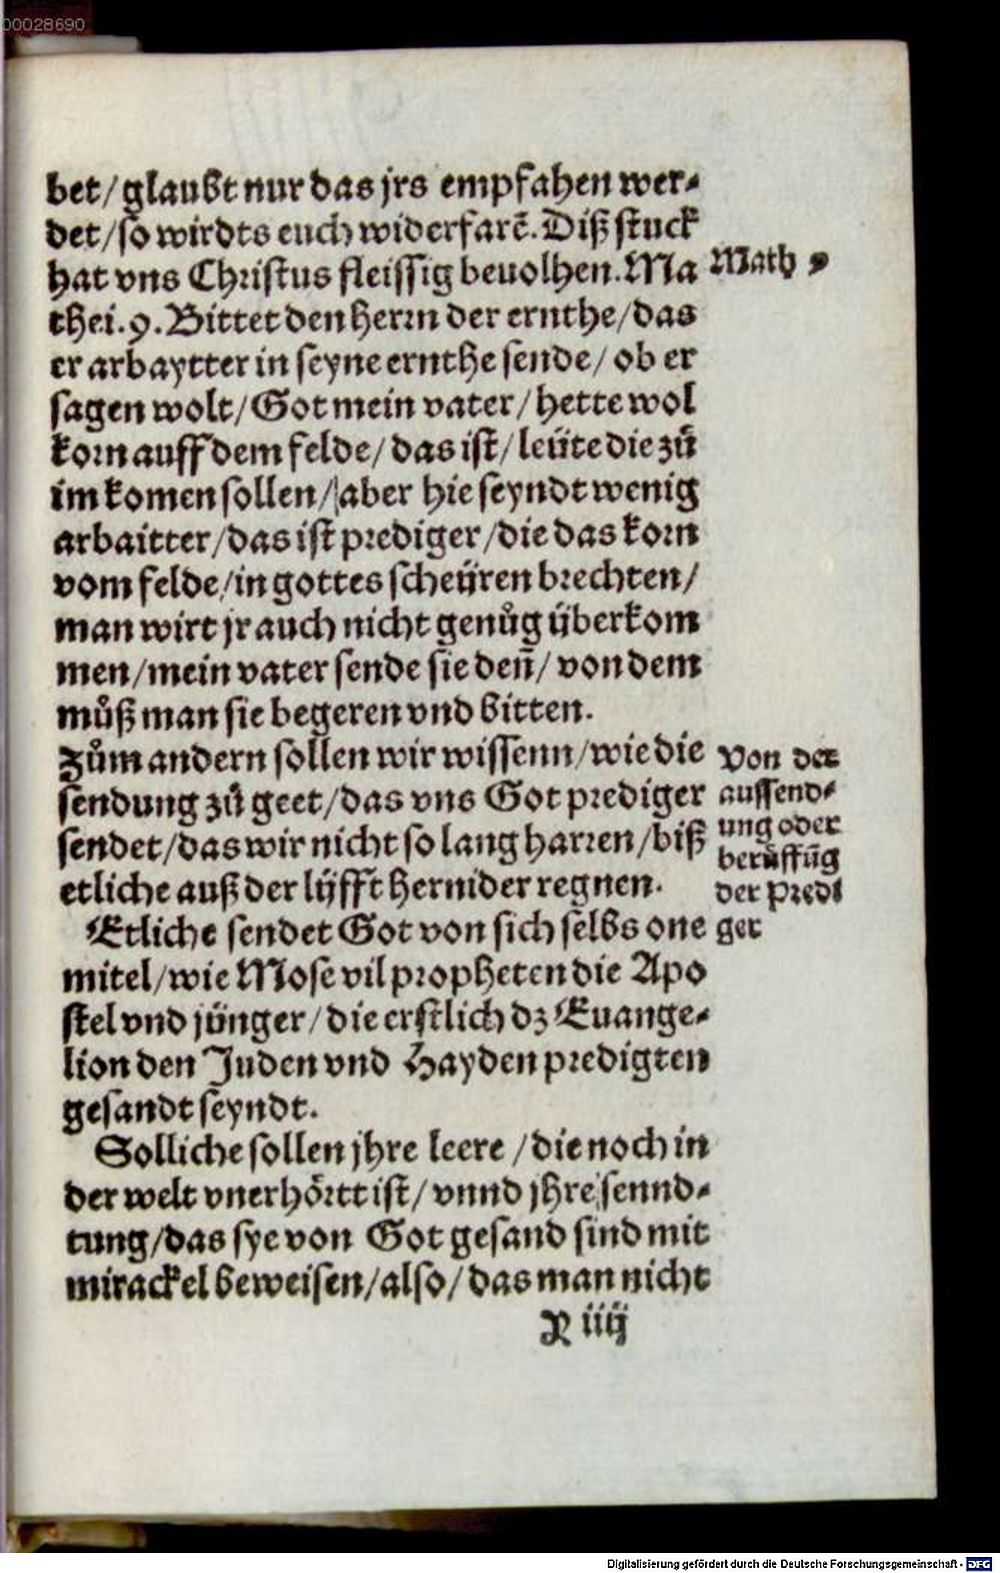 00028690
bet/glaubt nur das jrs empfahen wer-
det/so wirdts euch widerfarẽ. Diß stuck
hat vns Christus fleissig beuolhen. Ma
Math 9
thei. 9. Bittet den Herrn der ernthe/das
er arbaytter in seyne ernthe sende/ ob er
sagen wolt/Got mein vater/hette wol
korn auff dem felde/ das ist/ leüte die zů
im komen sollen/aber hie seyndt wenig
arbaitter/das ist prediger/die das korn
vom felde/in gottes scheüren brechten/
man wirt jr auch nicht genůg überkom
men/mein vater sende sie deñ/ von dem
můß man sie begeren vnd bitten.
Zům andern sollen wir wissenn/wie die
sendung zů geet/das vns Got prediger
sendet/das wir nicht so lang harren/biß
etliche auß der lüfft hernider regnen.
Von der
aussend-
ung oder
berůffũg
der Predi
ger
Etliche sendet Got von sich selbs one
mitel/wie Mose vil propheten die Apo
stel vnd jünger/die erstlich dz Euange-
lion den Juden vnd Hayden predigten
gesandt seyndt.
Solliche sollen jhre leere /die noch in
der welt vnerhörtt ist/ vnnd jhre sennd-
tung/das sye von Got gesand sind mit
mirackel beweisen/also/das man nicht
iiij
Digitalisierung gefördert durch die Deutsche Forschungsgemeinschaft - DFG